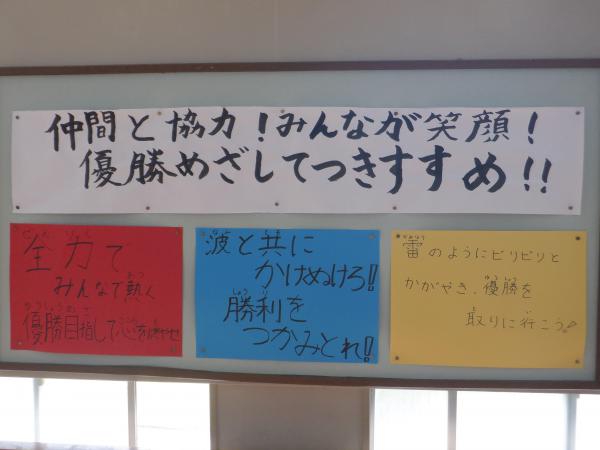 仲間と協力！みんなが笑顔！
優勝めざしてつきすすめ！！
全力で
みんなで熱く
優勝目指して心を燃やせ
波と共に
かけぬけろ！！
勝利を
つかみとれ！！
雷のようにビリビリと
かがやき、優勝を
取りに行こう！